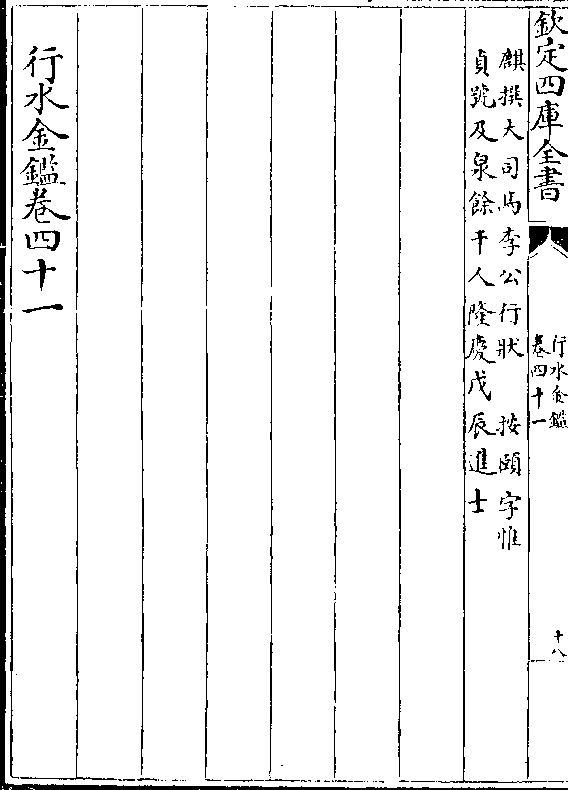 欽定四庫全書
行水金鑑
卷四十一
十八
麒撰大司馬李公行狀　按頤字惟
貞號及泉餘干人隆慶戊辰進士
行水金鑑卷四十一